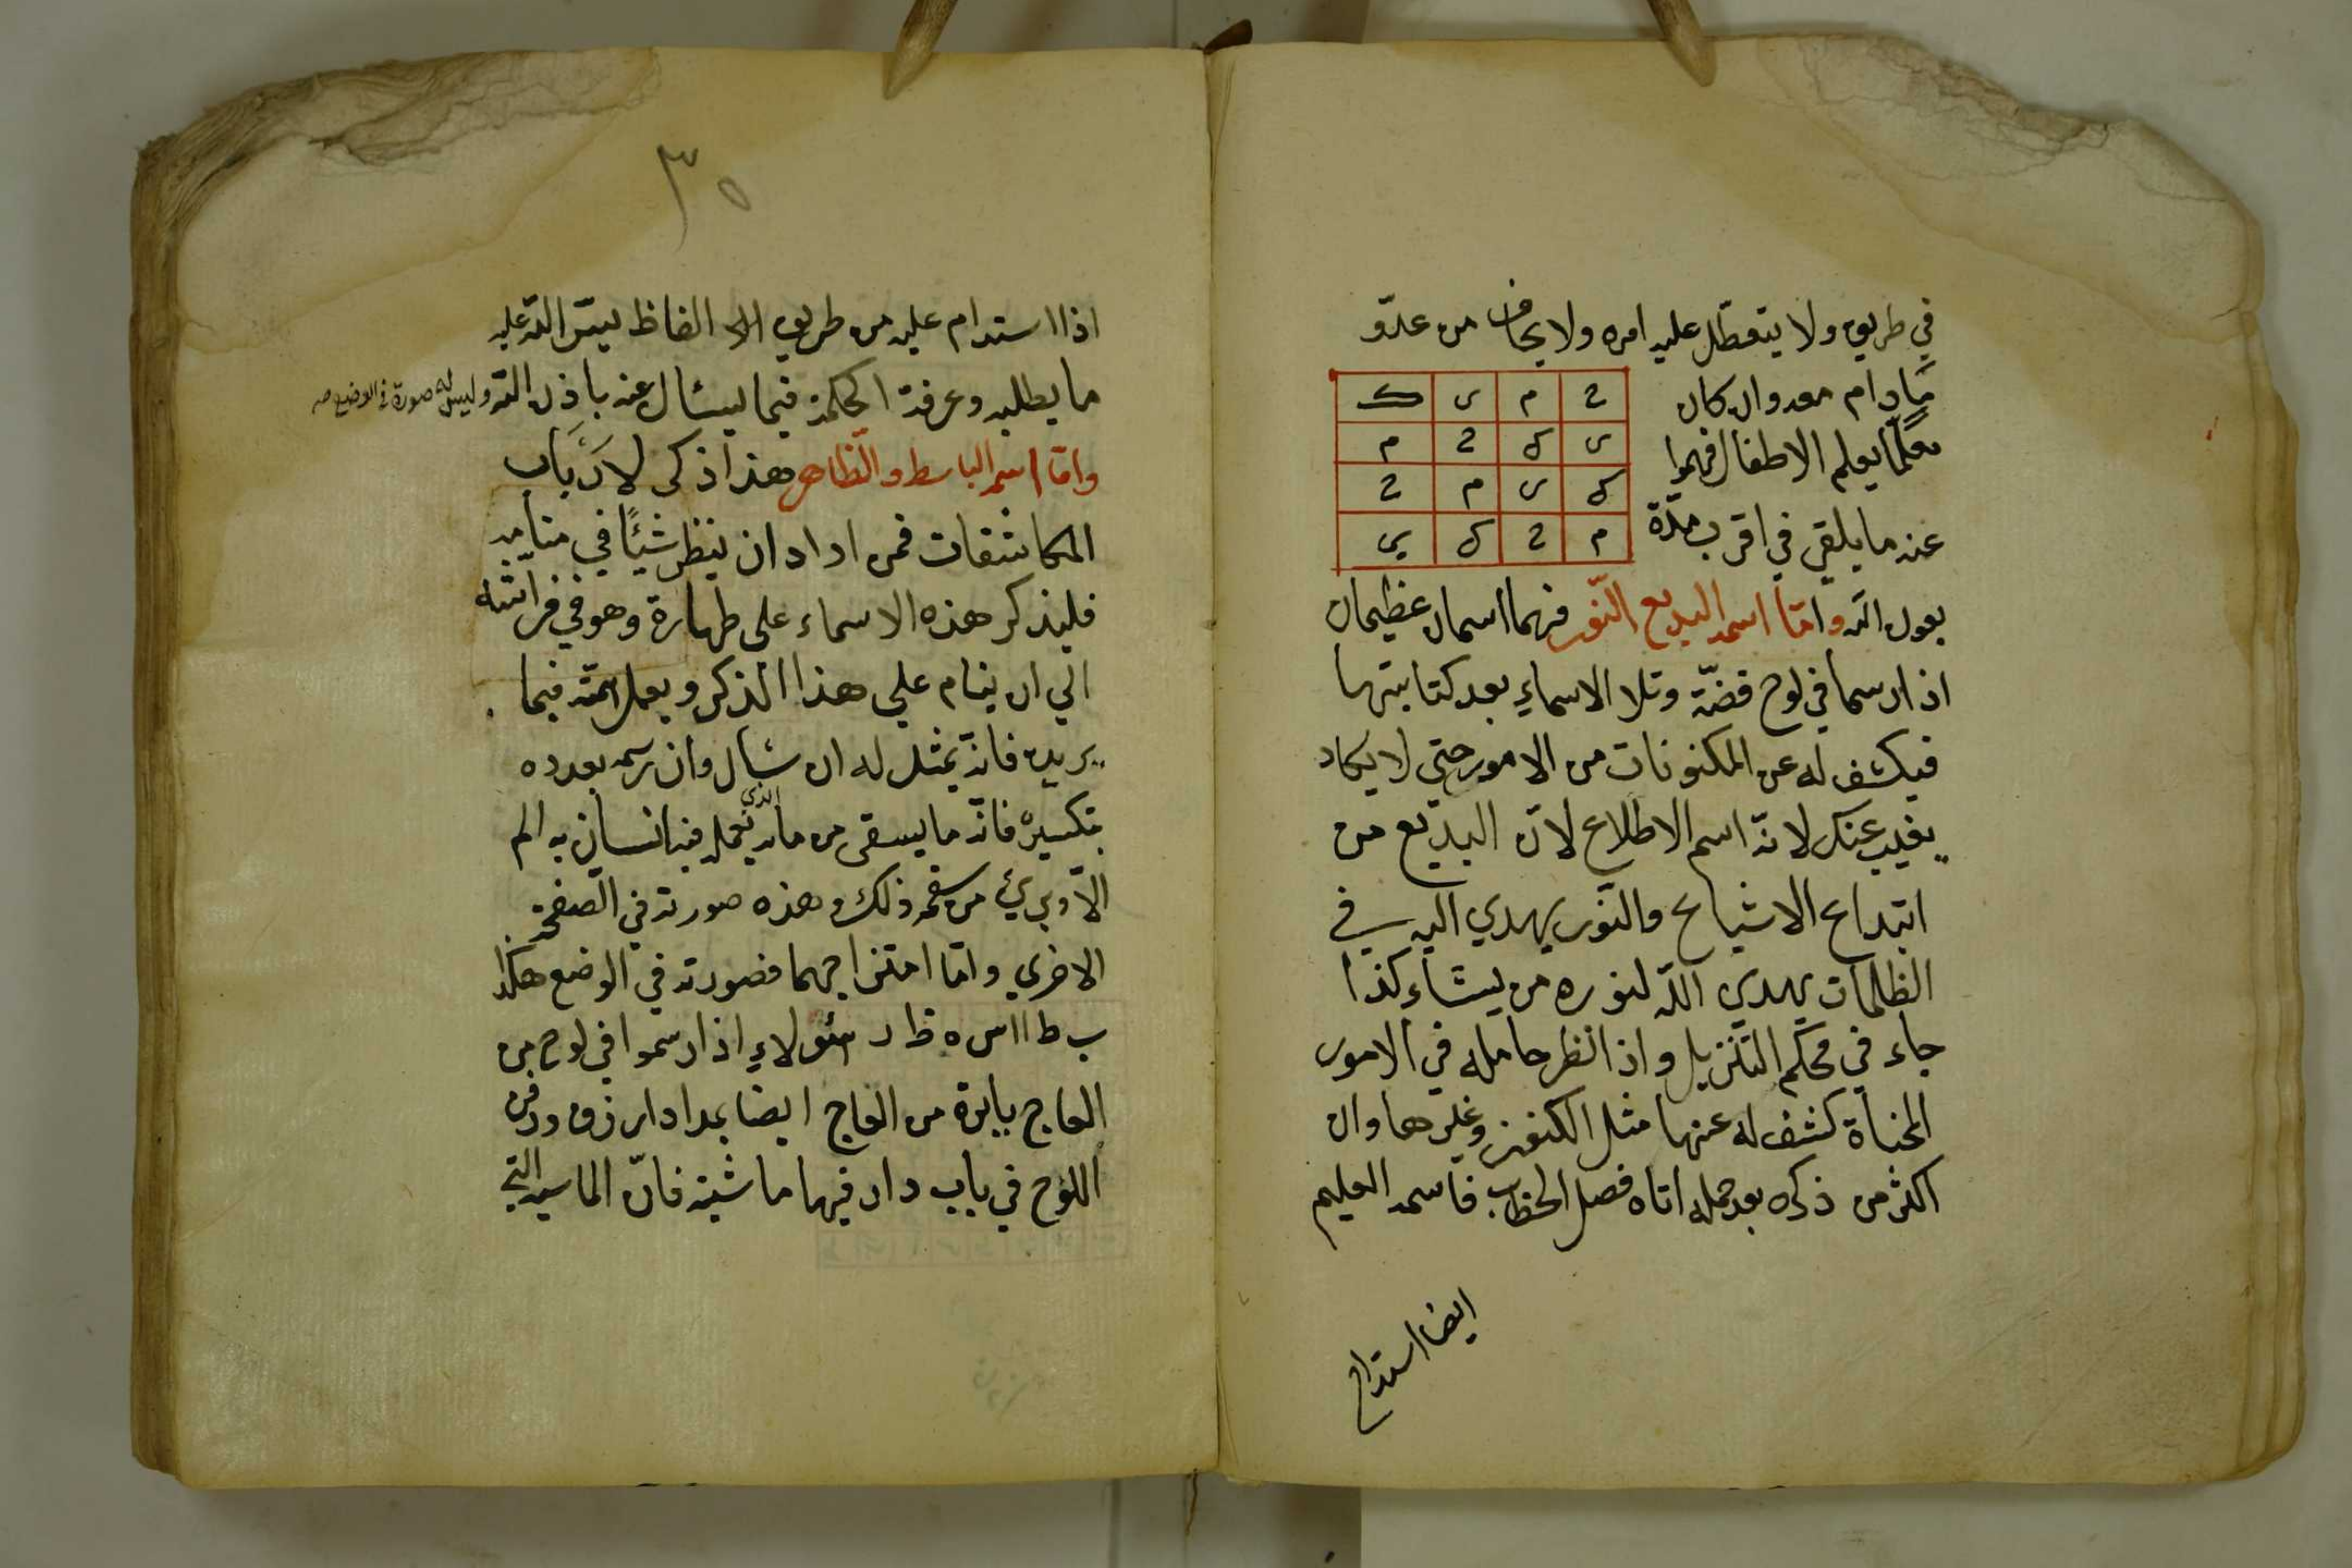 في طريق ولا يتعطل عليه امره ولا يخاف من عدّو
مادام معه وان كان
معلّمًا يعلم الاطفال فهموا
عنه ما يلقي في اقرب مدّة
ح م ى ك
ى ك ح م
ك ى م ح
م ح ك ى
بعون الله وامّا اسمه البديع النّور فهما اسمان عظيمان
اذا رسما في لوح فضّة وتلا الاسماء بعد كتابتها
فيكشف له عن المكنونات من الامور حتى لا يكاد
يغيب عنك لانّه اسم الاطلاع لانّ البديع من
ابتداع الاشياح والنّور يهدي اليه في
الظلمات يهدي اللّه لنوره من يشاء كذا
جاء في محكم التنزيل واذا نظر حامله في الامور
المخبأة كشف له عنها مثل الكنوز وغيرها وان
اكثر من ذكره بعد حمله اتاه فصل الخطاب فاسمه العليم
ايضا استدام
٣٥
اذا استدام عليه من طريق الالفاظ يسّر الله عليه
ما يطلبه وعرفة الحكمة فيما يسئال عنه باذن الله وليس له صورة في الوضع صه
وامّا اسمه الباسط والظّاهر هذا ذكر لارباب
المكاشفات فمن اراد ان ينظر شيئًا في منامه
فليذكر هذه الاسماء على طهارة وهو في فراشه
الي ان ينام علي هذا الذكر ويعمل همّته فيما
يريده فانّه يمثل له ان سأل وان رسمه بعدده
بتكسيره فانّه ما يسقي من مائه الذي يعمل فيه انسان به الم
الّا وبرئ من سقمه ذلك وهذه صورته في الصفحة
الاخري وامّا امتزاجهما فصورته في الوضع هكذا
ب ط ا ا س ه ظ ر هئولاء اذا رسموا في لوح من
العاج بابرة من العاج ايضا بمداد ازرق ودفن
اللوح في باب دار فيها ماشية فانّ الماشية التي